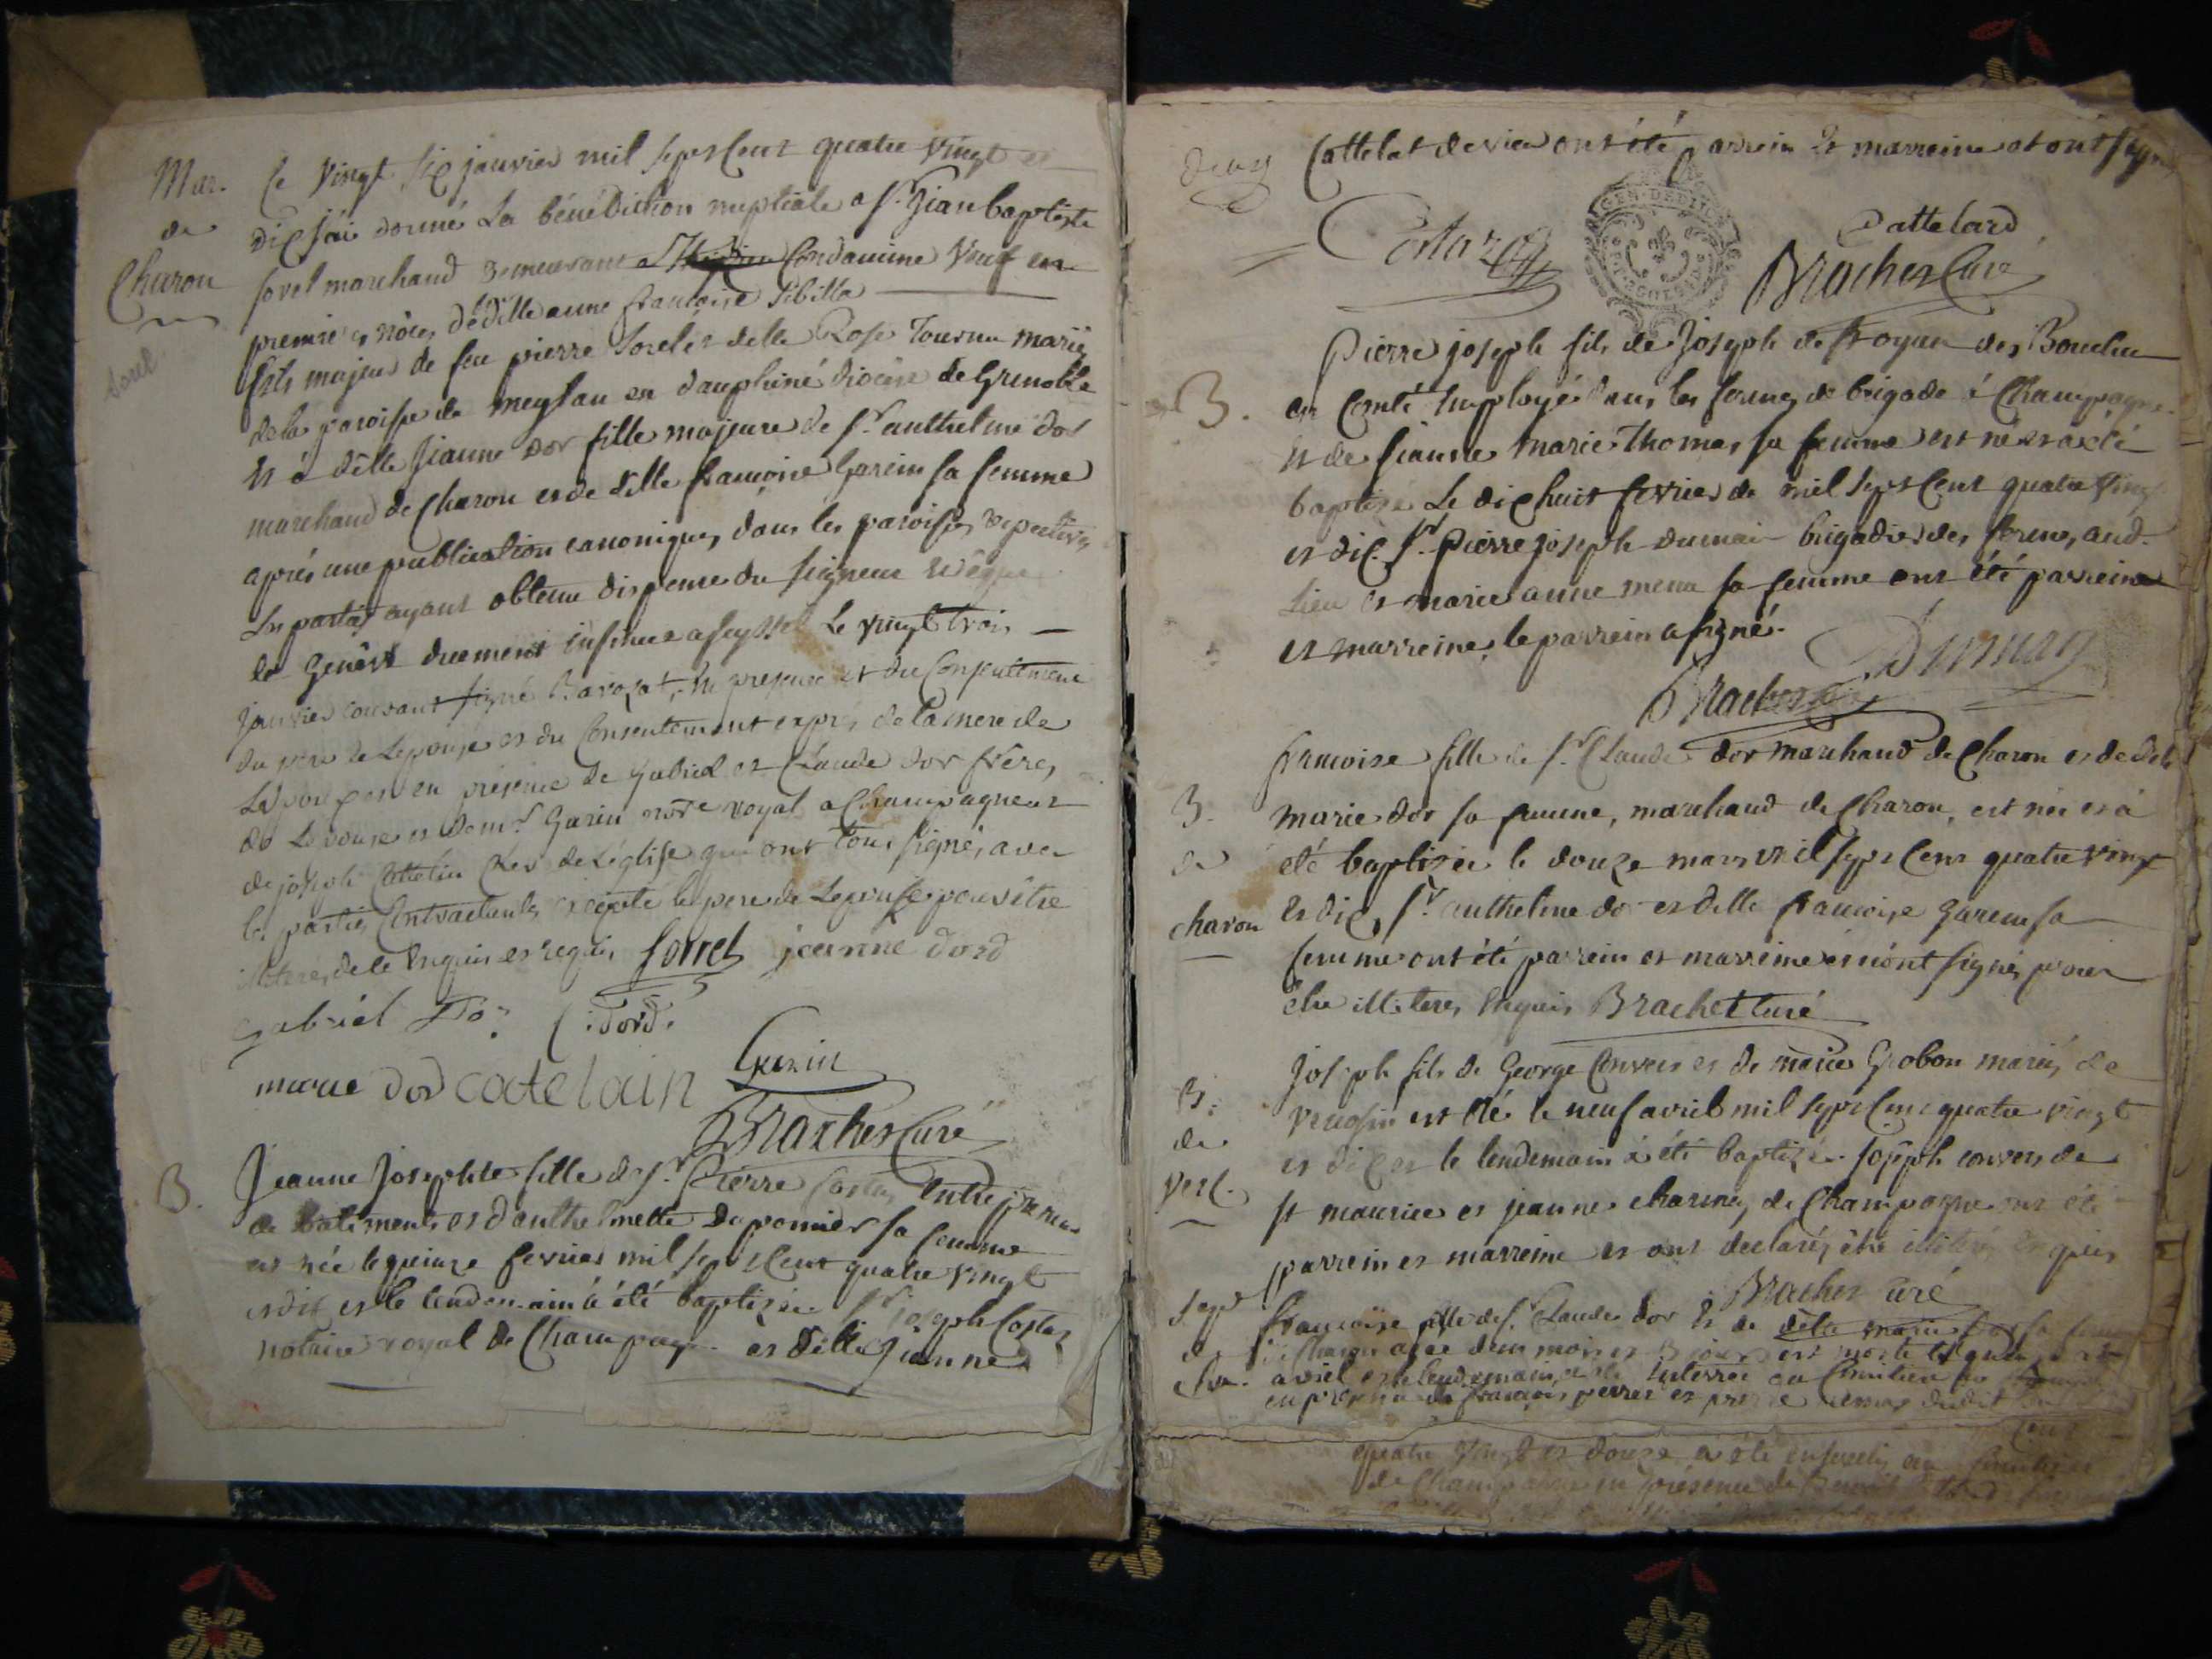 Mar.
de
Charon
Sorel
Le vingt six janvier mil sept cent quatre vingt et
dix j'ai donné La bénédiction nuptiale a Sr. Jean baptiste
sorel marchand demeurant a Condamine veuf en
premieres nôces de delle anne francoise Sibille
fils majeur de feu pierre Sorel et delle Rose Tournu mariés
de la paroisse de meylan en dauphiné diocèse de Grenoble
et à delle Jeanne dor fille majeure de Sr. anthelme dor
marchand de Charon et de delle francoise Garein sa femme
après une publication canonique, dans les paroisses respectives
les parties ayant obtenu dispense du seigneur Evêque
de Genève duement insinuée a seyssel Le vingt trois
janvier courant signé Barozat, En presence et du Consentement
du pere de Lepouse et du Consentement exprès de la mere de
Lepoux et en présence de Gabriel et Claude dor frères
de Lepouse et de mr. Garin notre royal a Champagneux
de joseph Cattelin Clerc de Léglise qui ont tous signés avec
les parties Contractantes excepté le pere de Lepouse pour être
illiteré, de ce Enquis et requis Sorrel jeanne dord
gabriel Dor C: dord.
marie dor catelain Garin
Brachet Curé
B.
Jeanne Josephte fille de Sr. Pierre Costaz Entrepreneur
de batiments et d'anthelmette Dupomier sa femme
est née le quinze fevrier mil sept Cent quatre vingt
et dix et le lendemain à été baptisée. Sr joseph Costaz
notaire royal de Champagne et delle Jeanne
deux
Cattelat de vieu ont été parrein et marreine et ont signé
Costaz
Cattelard
Brachet Curé
B.
Pierre joseph fils de Joseph de froyan des Bouchu
en Comté Employé dans les fermes de brigade à Champagne
et de jeanne Marie Thomas sa femme est né et a eté
baptisé Le dix huit fevrier de mil sept Cent quatre vingt
et dix. Sr. Pierre joseph dumain brigadier des fermes aud.
Lieu et marie anne menu sa femme ont été parreine
et marreine, le parrein a signé.
Brachet
B.
de
charon
francoise fille de Sr. Claude dor marchand de Charon et de delle
marie dor sa femme, marchand de Charon, est née et à
eté baptisée le douze mars mil sept Cent quatre vingt
et dix, Sr. anthelme dor et delle francoise garein sa
femme ont été parrein et marreine et n'ont signé, pour
être illiteres Enquis Brachet Curé
B.
de
vert.
Joseph fils de George Convers et de marie Grobon mariés de
est Né le neuf avril mil sept Cent quatre vingt
et dix et le lendemain à été baptisé. joseph convers de
st maurice et jeanne charmey de Champagne ont été
parrein et marreine et ont declaré être illiteré Enquis
Brachet Curé
Sep
de
cha.
francoise fille de Sr. Claude dor Et de delle marie dor sa femme
de Charon agée deux mois et 3 jours est morte le quinze
avril et le lendemain a ete Enterrée au Cimitiere
en presence de francois perret et
Cent
quatre vingt et douze a été enseveli au Cimitiere
de Champagne en présence de Benoit